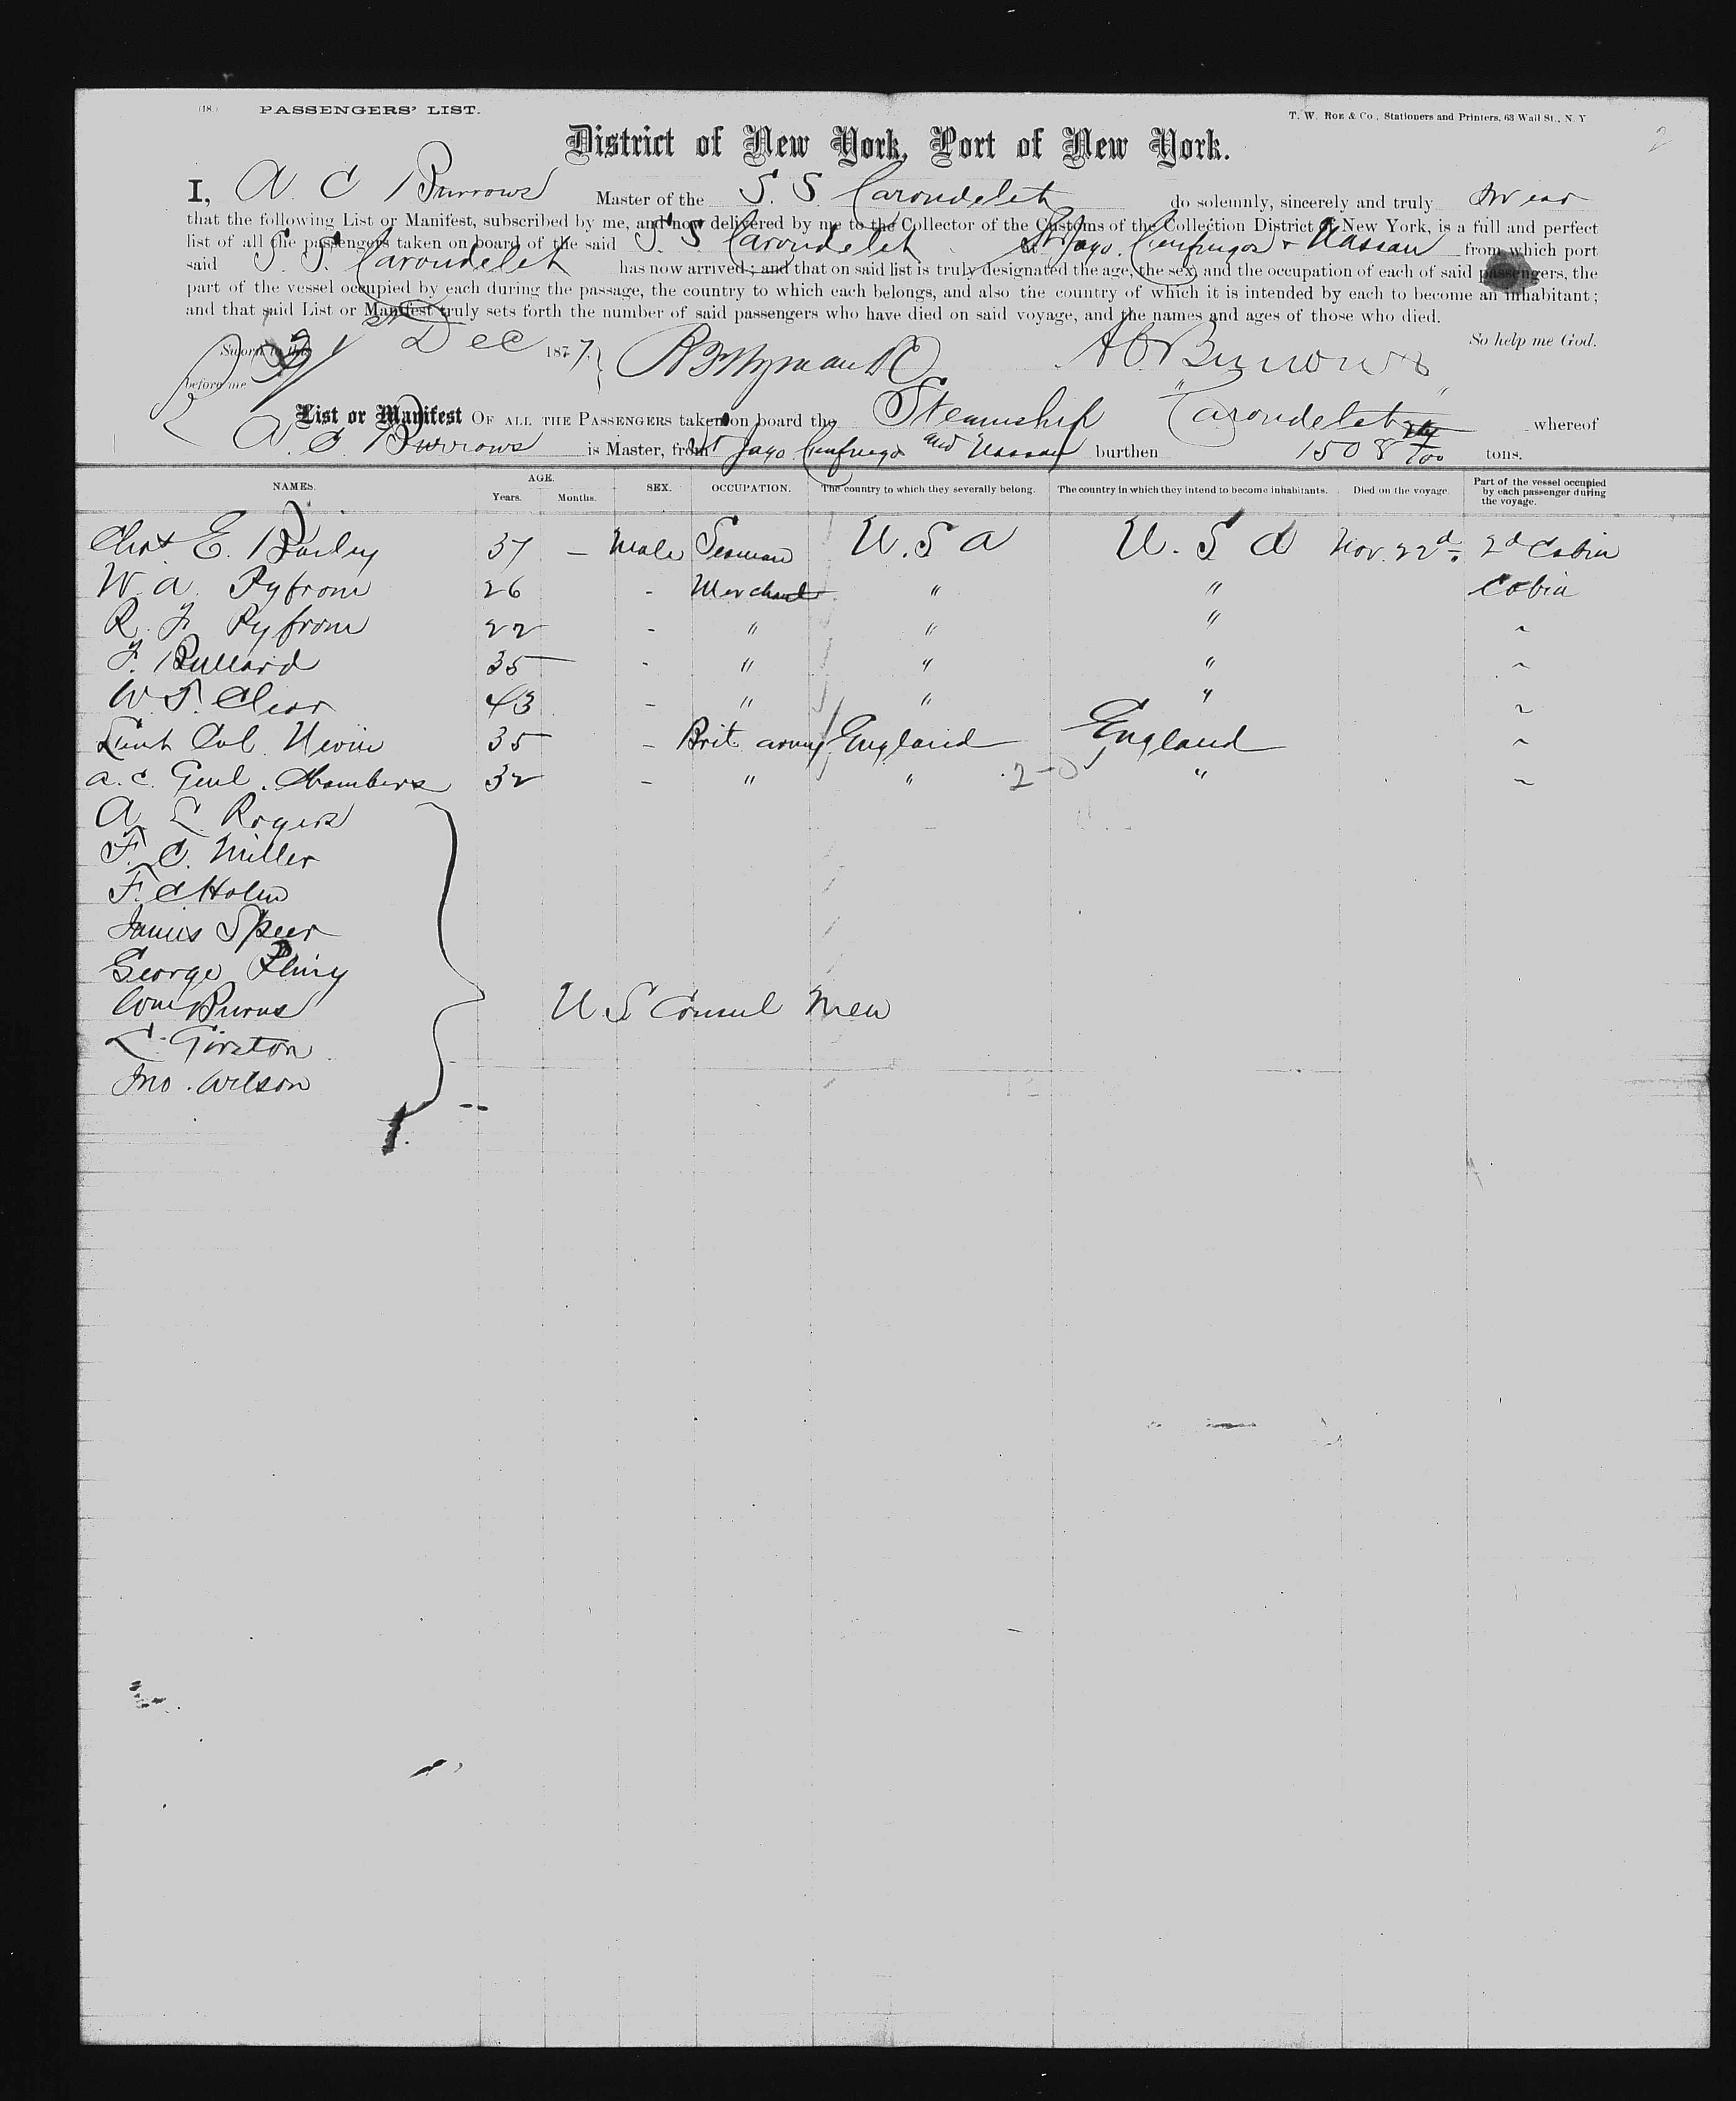 (18.) PASSENGERS' LIST. T. W. ROE & Co., Stationers and Printers, 63 Wall St., N. Y 2
District of New York, Port of New York.
I, A C Burrows Master of the S. S. Carondelet do solemnly, sincerely and truly swear
that the following List or Manifest, subscribed by me, and now delivered by me to the Collector of the Customs of the Collection District of New York, is a full and perfect
list of all the passengers taken on board of the said S S Carondelet St Jago, Cenfuegos & Nassau from which port
said S. S. Carondelet has now arrived; and that on said list is truly designated the age, the sex, and the occupation of each of said passengers, the
part of the vessel occupied by each during the passage, the country to which each belongs, and also the country of which it is intended by each to become an inhabitant;
and that said List or Manifest truly sets forth the number of said passengers who have died on said voyage, and the names and ages of those who died.
Sworn to this Dec 1877. A C Burrows So help me God.
before me
List or Manifest OF ALL THE PASSENGERS taken on board the Steamship "Carondelet" whereof
A. C. Burrows is Master, from St Jago Cenfuegos and Nassau burthen 1508 tons.
NAMES. AGE. Years. Months. SEX. OCCUPATION. The country to which they severally belong. The country in which they intend to become inhabitants. Died on the voyage. Part of the vessel occupied by each passenger during the voyage.
E. Bailey 37 — Male Seaman U. S A U. S A Nov. 22d. 2d Cabin
W. A. Pyfrom 26 - Merchant " " Cabin
R. F. Pyfrom 22 - " " " "
F. Bullard 35 - " " " "
W. T. Clear 43 - " " " "
Lieut Col. 35 - Brit army England England "
A. C. Genl. Chambers 32 - " " " "
A. L. Rogers
F. C. Miller
F. C Holm
James Speer
George Pliny
Wm Burns
L. Girston
Jno. Wilson
U. S Consul Men